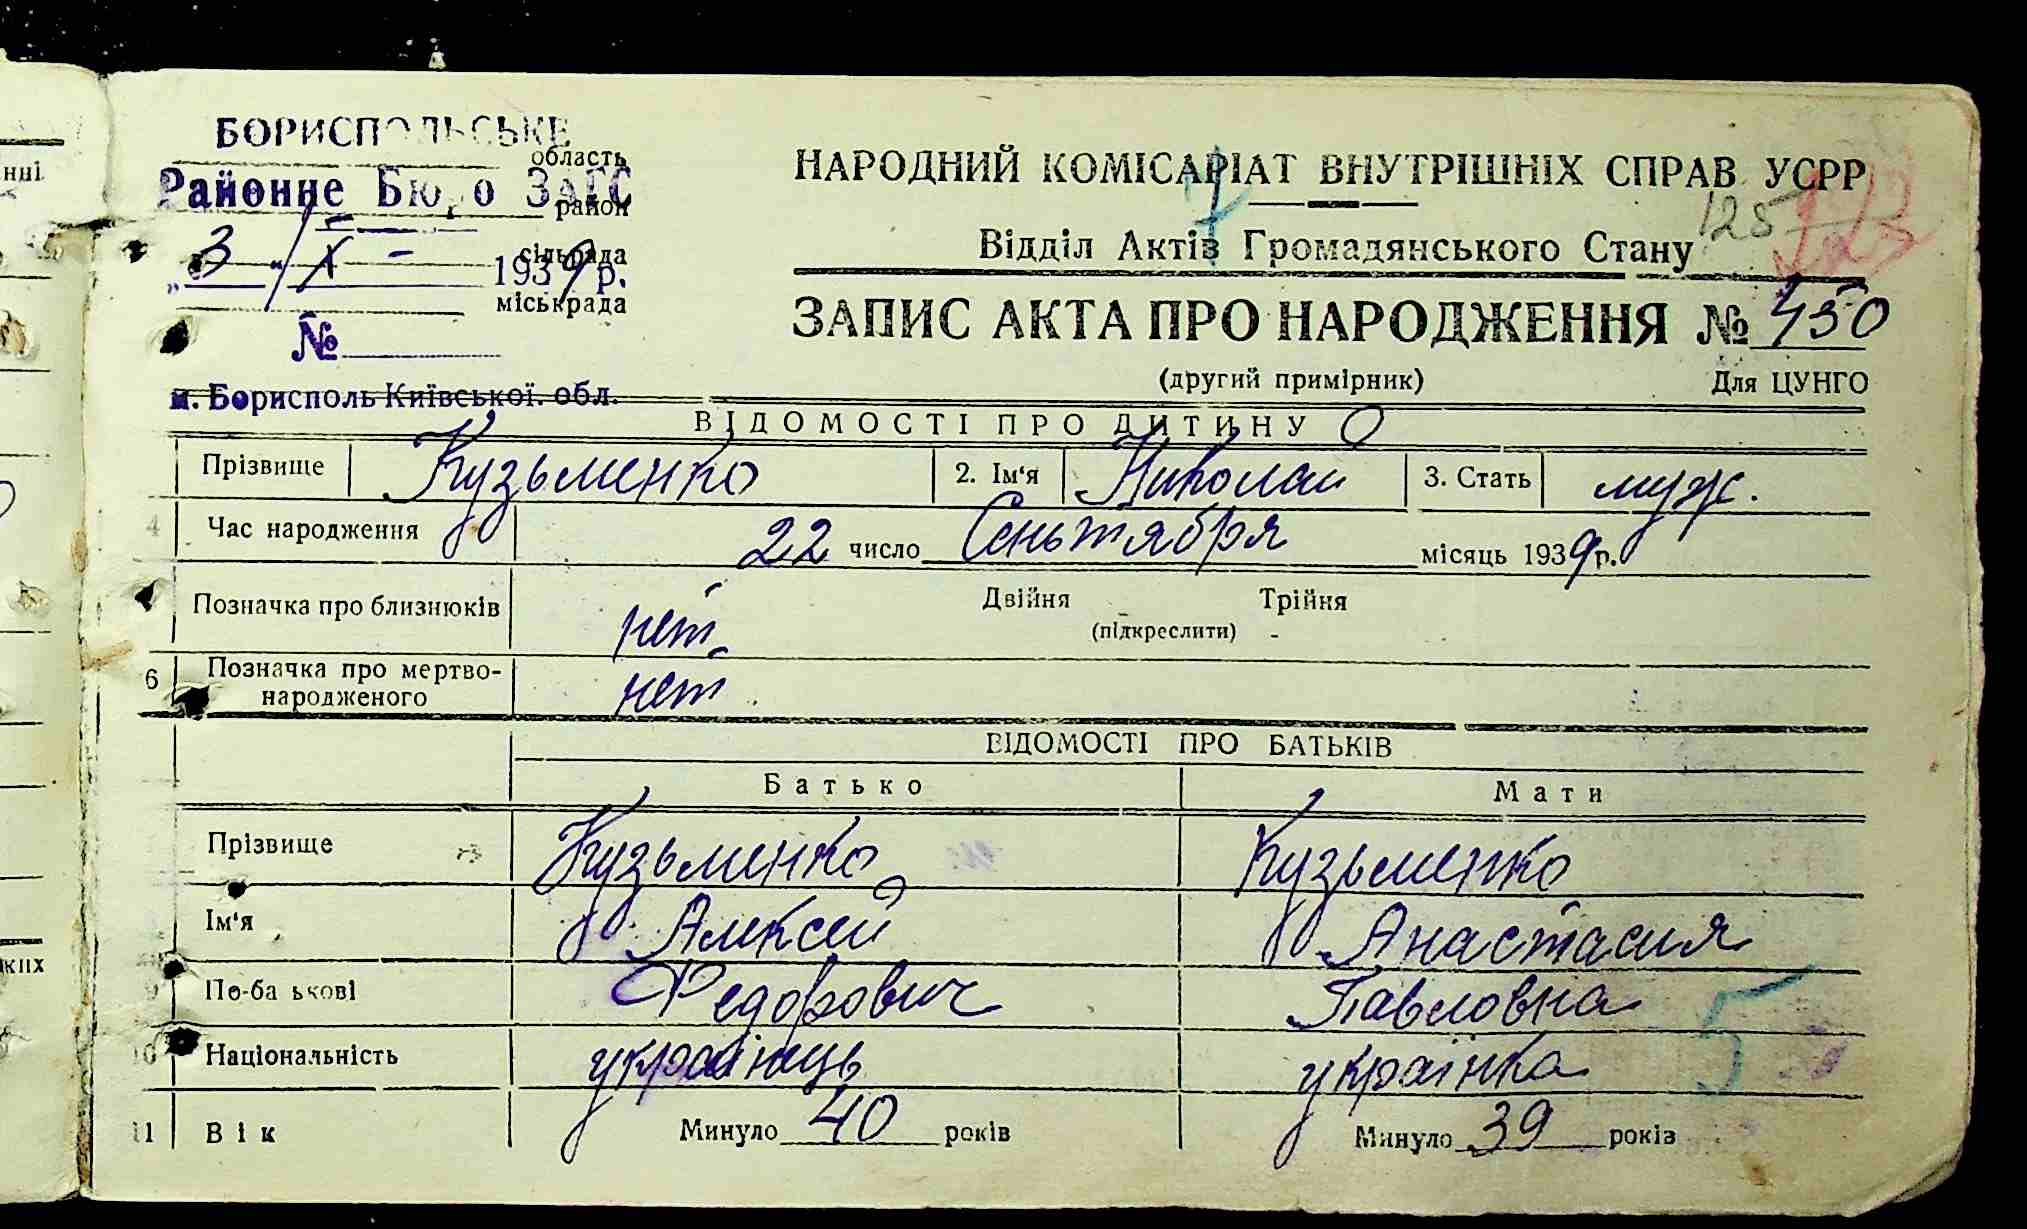 БОРИСПОЛЬСЬКЕ
область
Районне Бюро ЗАГС
район
сільрада
„3" / X - 1939 р.
міськрада
№
м. Борисполь Київської. обл.
НАРОДНИЙ КОМІСАРІАТ ВНУТРІШНІХ СПРАВ УСРР
125
Відділ Актів Громадянського Стану
ЗАПИС АКТА ПРО НАРОДЖЕННЯ № 450
(другий примірник) Для ЦУНГО
ВІДОМОСТІ ПРО ДИТИНУ
Прізвище Кузьменко 2. Ім'я Николай 3. Стать муж.
4 Час народження 22 число Сеньтября місяць 1939 р.
Позначка про близнюків нет Двійня Трійня
(підкреслити)
6 Позначка про мертво-
народженого нет
ВІДОМОСТІ ПРО БАТЬКІВ
Батько Мати
Прізвище Кузьменко Кузьменко
Ім'я Алексей Анастасия
9 По-ба ькові Федорович Павловна
5
10 Національність українець українка
11 Вік Минуло 40 років Минуло 39 років